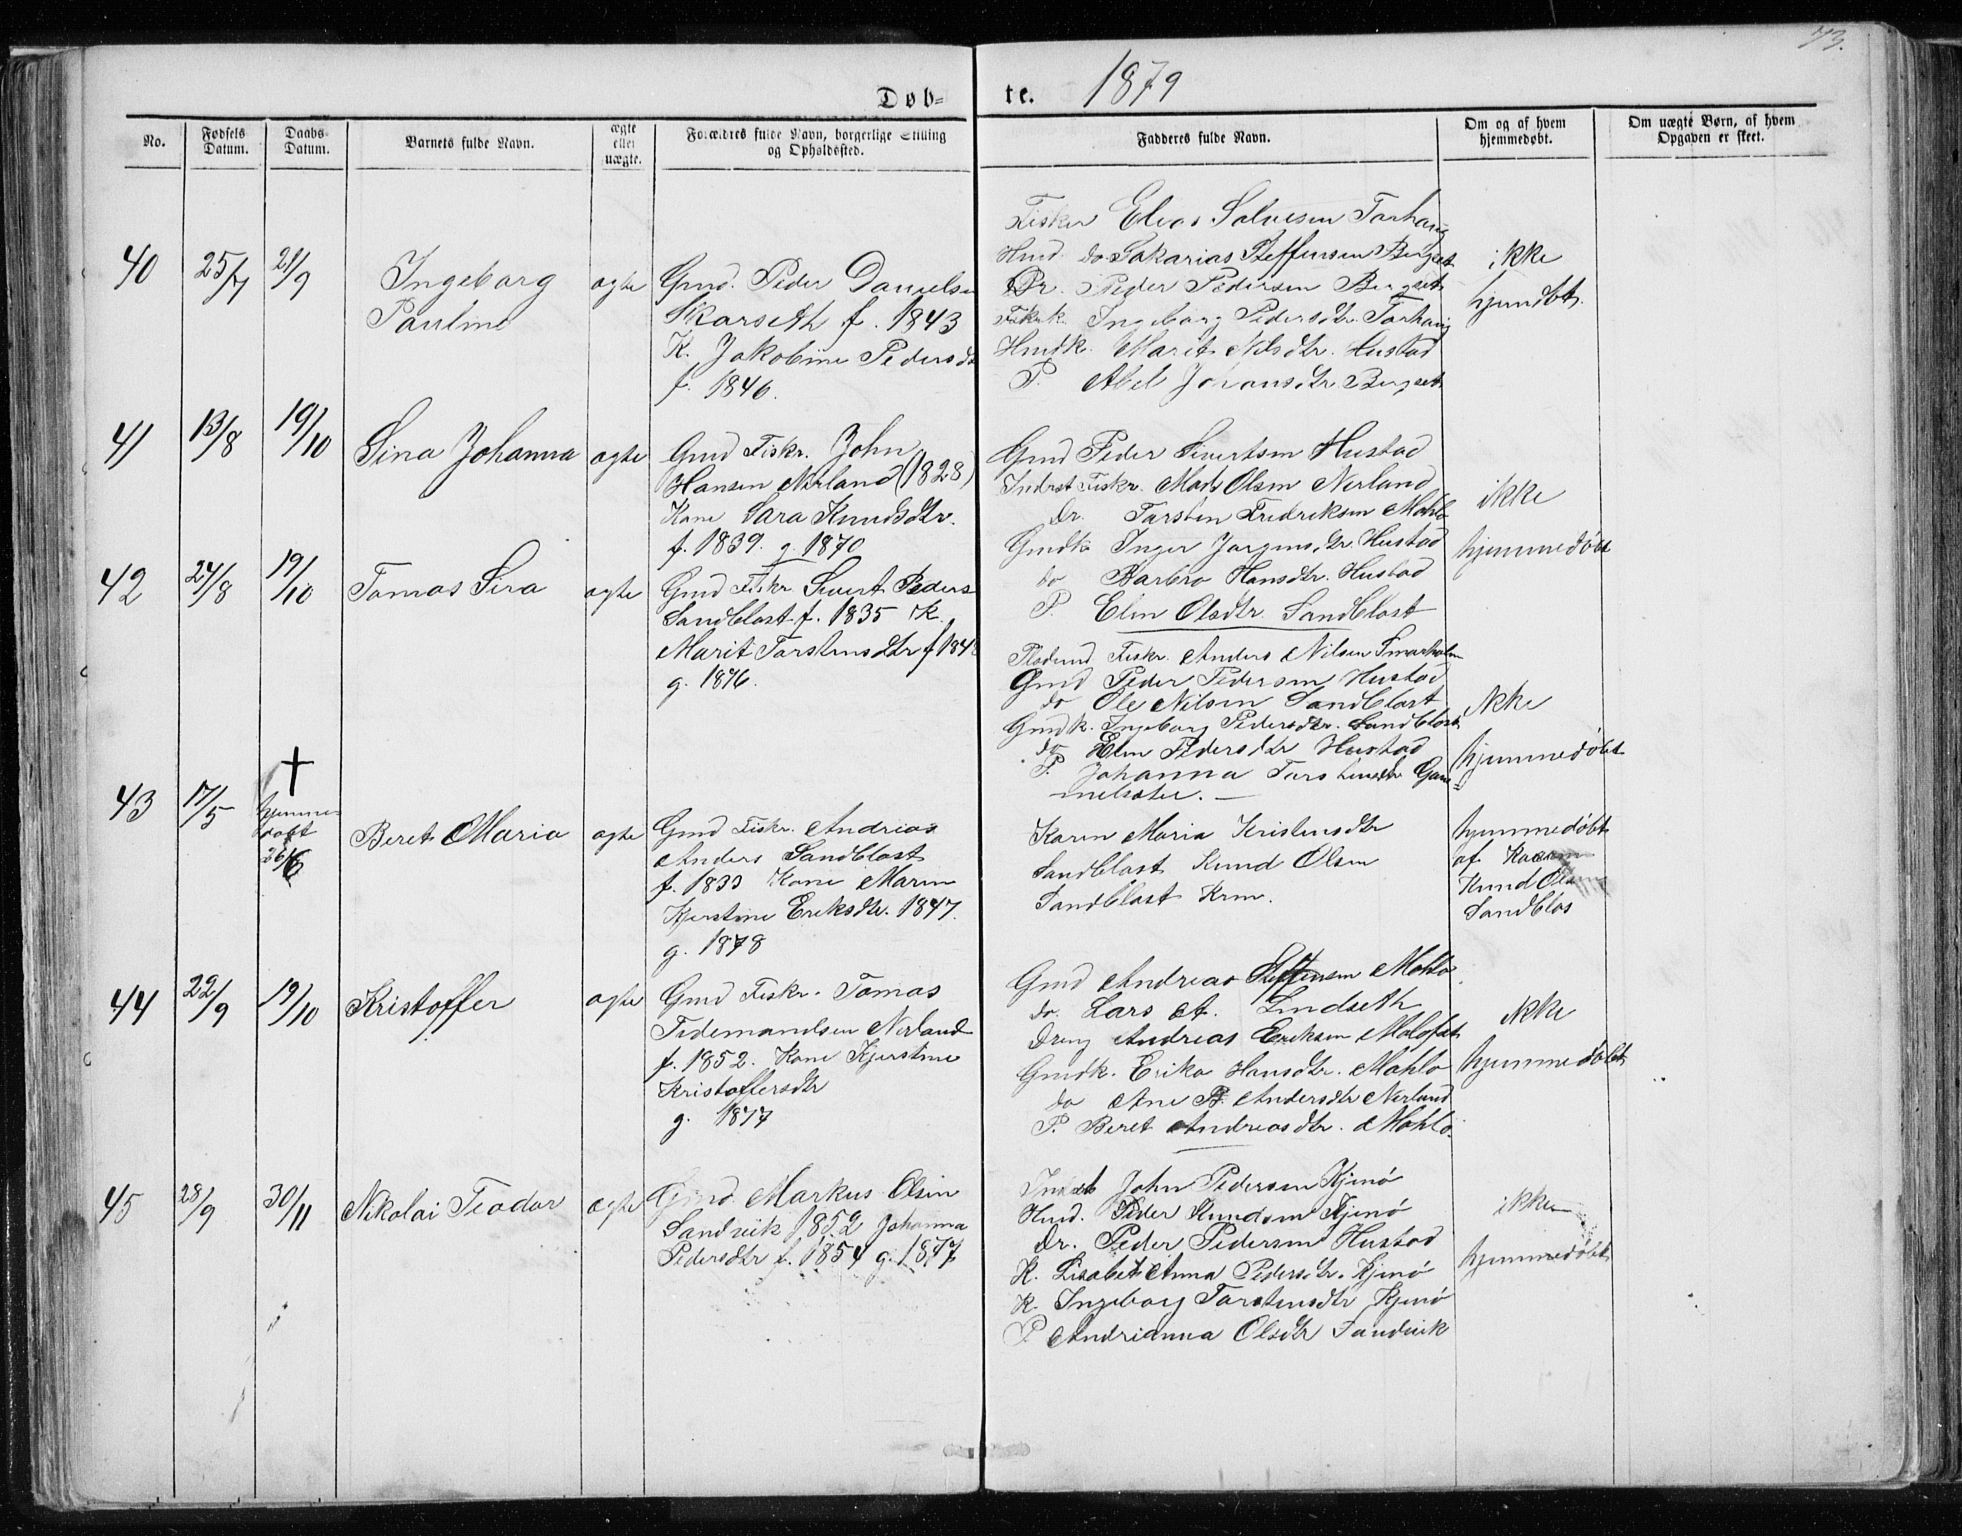 73.
Døb=
te. 1879
No.
Fødsels Datum.
Daabs Datum.
Barnets fulde Navn.
ægte eller uægte.
Forældres fulde Navn, borgerlige Stilling og Opholdssted.
Fadderes fulde Navn.
Om og af hvem hjemmedøbt.
Om uægte Børn, af hvem Opgaven er skeet.
40 25/7 21/9
Ingeborg
Pauline
ægte
Gmd. Peder Danielsen
Skarseth f. 1843
K. Jakobine Pedersdtr
f. 1846.
Fisker Elias Salvesen Tarhaug
Hmd do Sakarias Steffensen Bergset
Dr. Peder Pedersen Bergset
Ingeborg Pedersdtr. Tarhaug
Hmdk. Marit Nilsdtr. Hustad
P. Abel Johansdtr Bergset
ikke
hjemdbt.
41 13/8 19/10
Sina Johanna
ægte
Gmd Fiskr. John
Hansen Nerland (1828)
Kone Sara Knudsdtr.
f. 1839. g. 1870
Gmd Peder Sivertsen Hustad
Inderst Fiskr. Mads Olsen Nerland
Dr. Tarsten Fredriksen Mahlo
Gmdk Inger Jørgensdtr. Hustad
do Barbro Hansdtr. Hustad
P. Elen Olsdtr. Sandblast
ikke
hjemmedøbt
42 24/8 19/10
Tomas Sira
ægte
Gmd Fiskr Sivert Peders
Sandblast f. 1835 K.
Marit Tarstensdtr f 184
g. 1876.
Fiskr. Anders Nilsen
Gmd Peder Pedersen Hustad
do Ole Nilsen Sandblast
Gmdk. Ingeborg Pedersdtr. Sandblast
do Elen Pedersdtr Hustad
P. Johanna Tarstensdtr Gam
melsæter. —
ikke
hjemmedøbt
43 17/5
†
hjemme
døbt
26/6
Beret Maria
ægte
Gmd Fiskr. Andrias
Anders Sandblast
f. 1833 Kone Maren
Kjerstine Eriksdtr. 1847.
g. 1878
Karen Maria Kristensdtr
Sandblast Knud Olsen
Sandblast Krm.
hjemmedøbt
af
Knud Olsen
Sandblas
44 22/9 19/10
Kristoffer
ægte
Gmd Fiskr. Tomas
Tidemandsen Nerland
f. 1852. Kone Kjerstine
Kristoffersdtr
g. 1877
Gmd Andreas Steffensen Mahlo
do. Lars A. Lindseth
Dreng Andreas Eriksen Malefet
Gmdk. Erika Hansdtr. Mahlo
do Ane B. Andersdtr Nerland
P. Beret Andreasdtr. Mahlo.
ikke
hjemmedøbt
45 28/9 30/11
Nikolai Teodor
ægte
Gmd. Markus Olsen
Sandvik 1852 Johanna
Pedersdtr f. 1854 g. 1877
Inderst John Pedersen Kjenø
Hmd. Peder Knudsen Kjenø
Dr. Peder Pedersen Hustad
K. Lisabet Anna Pedersdtr. Kjenø
K. Ingeborg Tarstensdtr Kjenø
P Andrianna Olsdtr Sandvik
ikke
hjemmedøbt